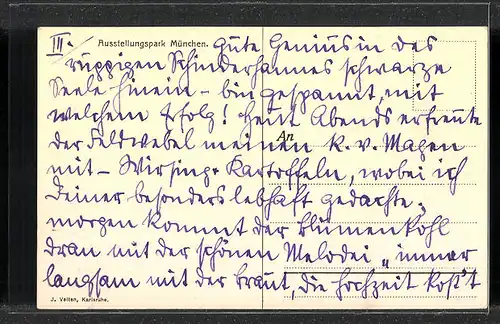 III.
Ausstellungspark München.
gute Geniusin des
ruppigen Schinderhannes schwarze
Seele hinein – bin gespannt, mit
welchem Erfolg! Heut Abends erfreute
An
der Feldwebel meinen K. v. Magen
mit – Wirsing + Kartoffeln, wobei ich
Deiner besonders lebhaft gedachte,
morgen kommt der Blumenkohl
dran mit der schönen Melodei „immer
langsam mit der Braut, die Hochzeit kost't
J. Velten, Karlsruhe.